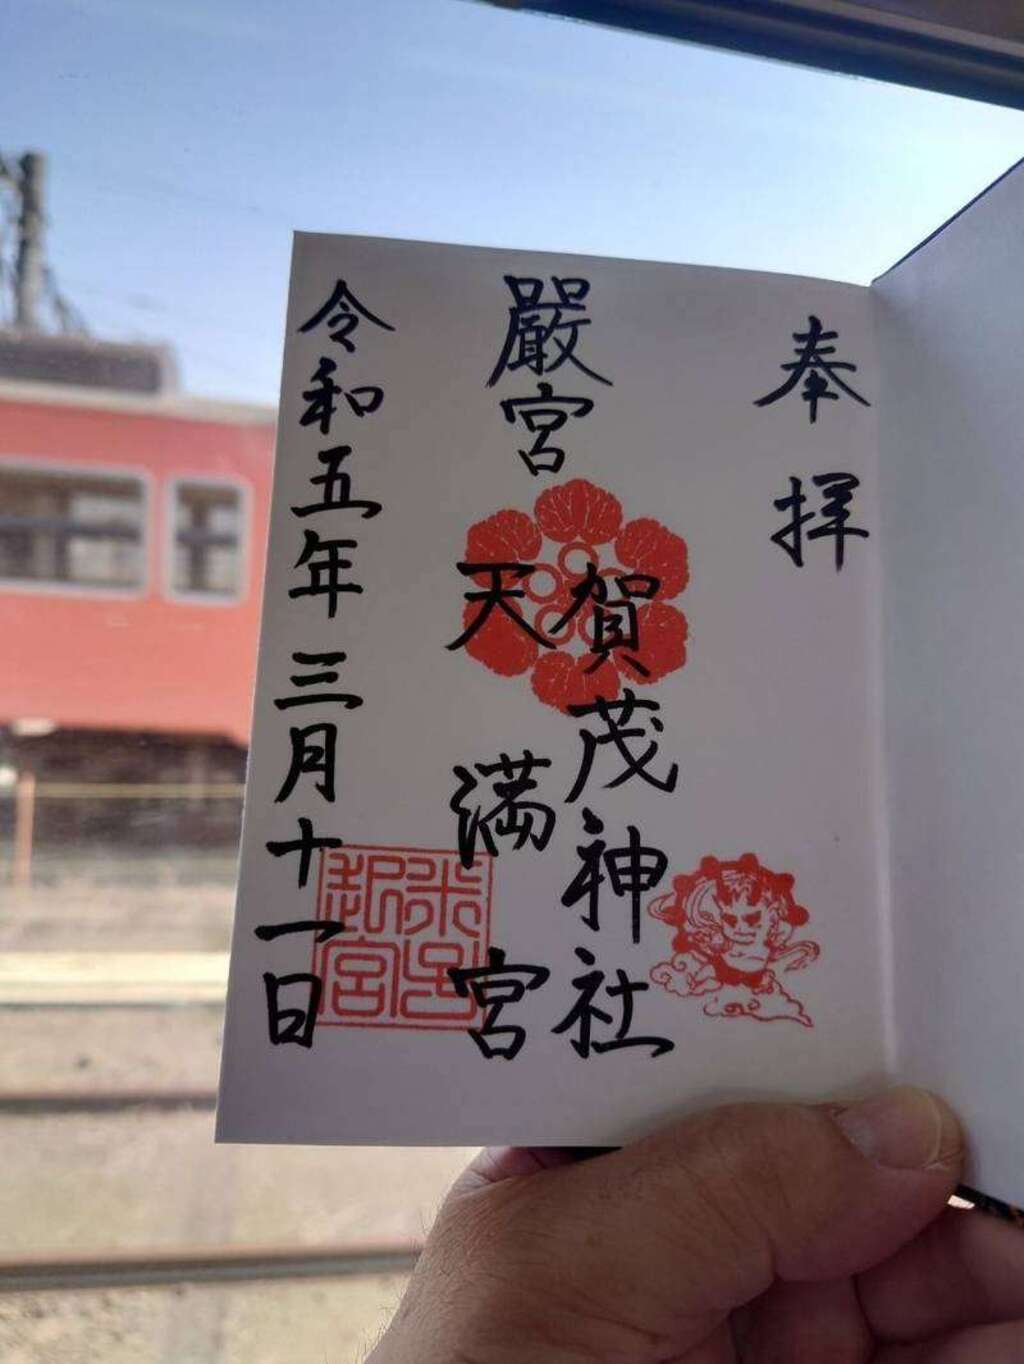 奉拝
嚴宮
賀茂神社
天満宮
令和五年三月十一日